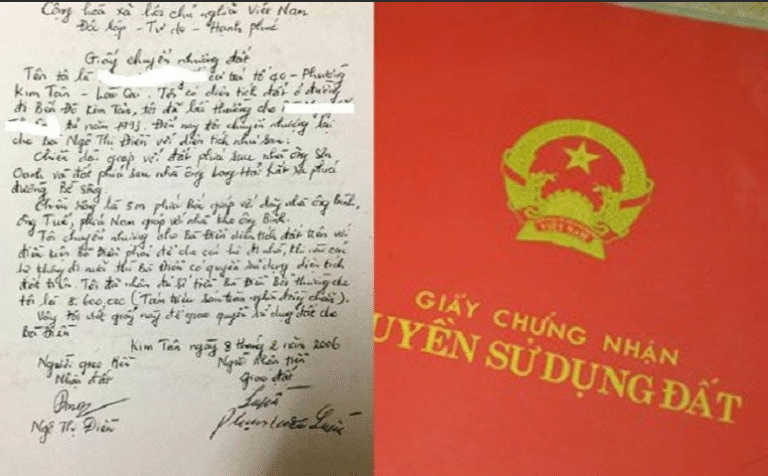 Cộng hoà xã hội chủ nghĩa Việt Nam
Độc lập - Tự do - Hạnh phúc
Giấy chuyển nhượng đất
Tên tôi là cư trú tổ 40 - Phường
Kim Tân - Lào Cai. Tôi có diện tích đất ở đường
đi Bến Đá Kim Tân, tôi đã bồi thường cho
từ năm 1993. Đến nay tôi chuyển nhượng lại
cho Bà Ngô Thị Điền với diện tích như sau:
Chiều dài giáp với đất phía sau nhà ông Sơn
Oanh và đất phía sau nhà ông Long Hải hắt ra phía
đường Bờ sông.
Chiều rộng là 5m phía Bắc giáp với nhà ông Bình,
ông Tuế, phía Nam giáp với nhà kho ông Bình.
Tôi chuyển nhượng cho Bà Điền diện tích đất trên với
điều kiện Bà Điền phải để cho các hộ đi nhờ, khi nào các
hộ không đi nữa thì Bà Điền có quyền sử dụng diện tích
đất trên. Tôi đã nhận đủ số tiền Bà Điền Bồi thường cho
tôi là 8.600.000 (Tám triệu sáu trăm nghìn đồng chẵn).
Vậy tôi viết giấy này để giao quyền sử dụng đất cho
Bà Điền
Kim Tân ngày 8 tháng 2 năm 2006
Người giao tiền Người nhận tiền
Nhận đất Giao đất
Ngô Thị Điền
VIỆT NAM
GIẤY CHỨNG NHẬN
UYỀN SỬ DỤNG ĐẤT